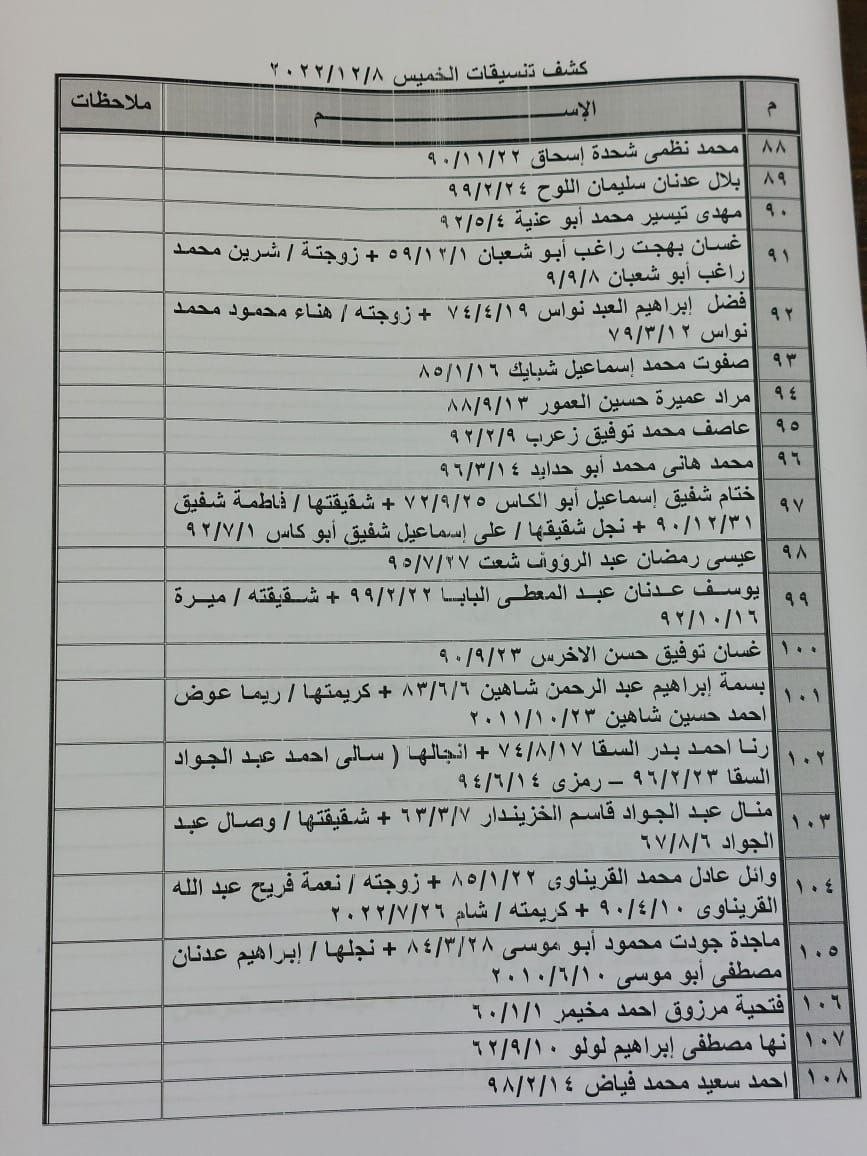 كشف تنسيقات الخميس ٢٠٢٢/١٢/٨
م الإســــــــــــــــم ملاحظات
٨٨ محمد نظمى شحدة إسحاق ٩٠/١١/٢٢
٨٩ بلال عدنان سليمان اللوح ٩٩/٢/٢٤
٩٠ مهدى تيسير محمد أبو عذية ٩٢/٥/٤
٩١ غسان بهجت راغب أبو شعبان ٥٩/١٢/١ + زوجتة / شرين محمد
راغب أبو شعبان ٩/٩/٨
٩٢ فضل إبراهيم العبد نواس ٧٤/٤/١٩ + زوجته / هناء محمود محمد
نواس ٧٩/٣/١٢
٩٣ صفوت محمد إسماعيل شبايك ٨٥/١/١٦
٩٤ مراد عميرة حسين العمور ٨٨/٩/١٣
٩٥ عاصف محمد توفيق زعرب ٩٢/٢/٩
٩٦ محمد هانى محمد أبو حدايد ٩٦/٣/١٤
٩٧ ختام شفيق إسماعيل أبو الكاس ٧٢/٩/٢٥ + شقيقتها / فاطمة شفيق
٩٠/١٢/٣١ + نجل شقيقها / على إسماعيل شفيق أبو كاس ٩٢/٧/١
٩٨ عيسى رمضان عبد الرؤوف شعت ٩٥/٧/٢٧
٩٩ يوسف عدنان عبد المعطى البابا ٩٩/٢/٢٢ + شقيقته / ميرة
٩٢/١٠/١٦
١٠٠ غسان توفيق حسن الاخرس ٩٠/٩/٢٣
١٠١ بسمة إبراهيم عبد الرحمن شاهين ٨٣/٦/٦ + كريمتها / ريما عوض
احمد حسين شاهين ٢٠١١/١٠/٢٣
١٠٢ رنا احمد بدر السقا ٧٤/٨/١٧ + انجالها ( سالى احمد عبد الجواد
السقا ٩٦/٢/٢٣ – رمزى ٩٤/٦/١٤
١٠٣ منال عبد الجواد قاسم الخزيندار ٦٣/٣/٧ + شقيقتها / وصال عبد
الجواد ٦٧/٨/٦
١٠٤ وائل عادل محمد القريناوى ٨٥/١/٢٢ + زوجته / نعمة فريح عبد الله
القريناوى ٩٠/٤/١٠ + كريمته / شام ٢٠٢٢/٧/٢٦
١٠٥ ماجدة جودت محمود أبو موسى ٨٤/٣/٢٨ + نجلها / إبراهيم عدنان
مصطفى أبو موسى ٢٠١٠/٦/١٠
١٠٦ فتحية مرزوق احمد مخيمر ٦٠/١/١
١٠٧ نها مصطفى إبراهيم لولو ٦٢/٩/١٠
١٠٨ احمد سعيد محمد فياض ٩٨/٢/١٤